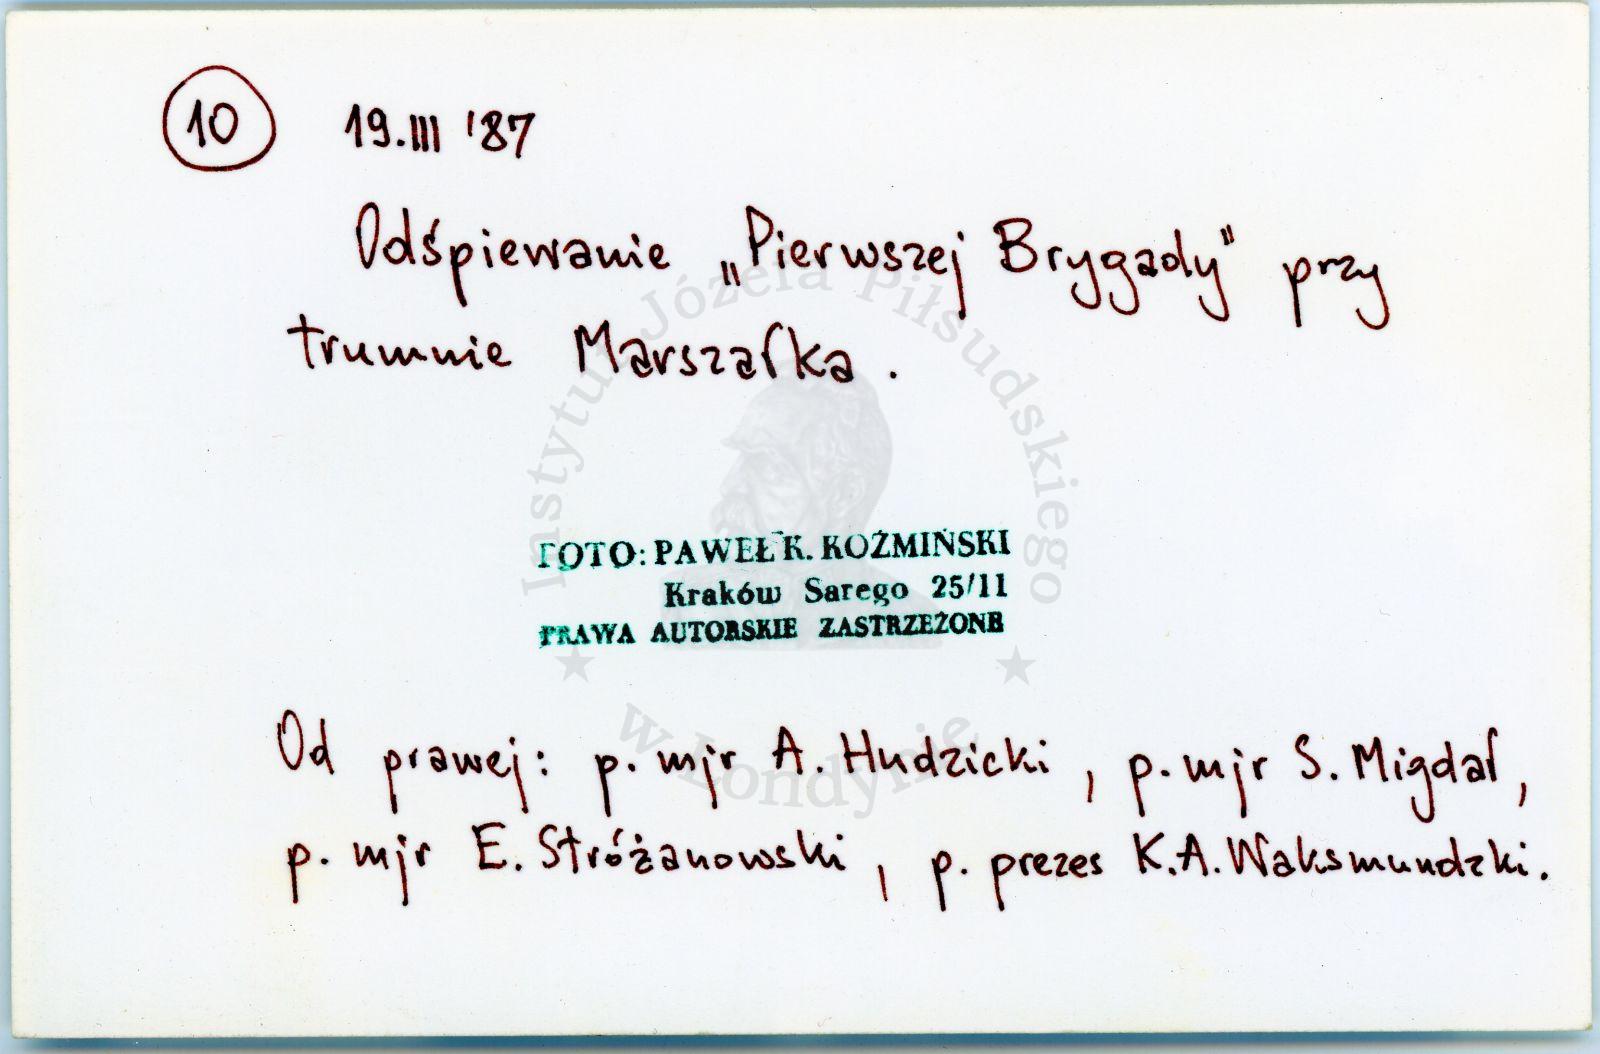 10 19.III '87
Odśpiewanie „Pierwszej Brygady" przy
trumnie Marszałka.
FOTO: PAWEŁ K. KOŹMIŃSKI
Kraków Sarego 25/11
PRAWA AUTORSKIE ZASTRZEŻONE
Od prawej: p. mjr A. Hudzicki, p. mjr S. Migdał,
p. mjr E. Stróżanowski, p. prezes K.A. Waksmundzki.
Instytut Józefa Piłsudskiego
w Londynie